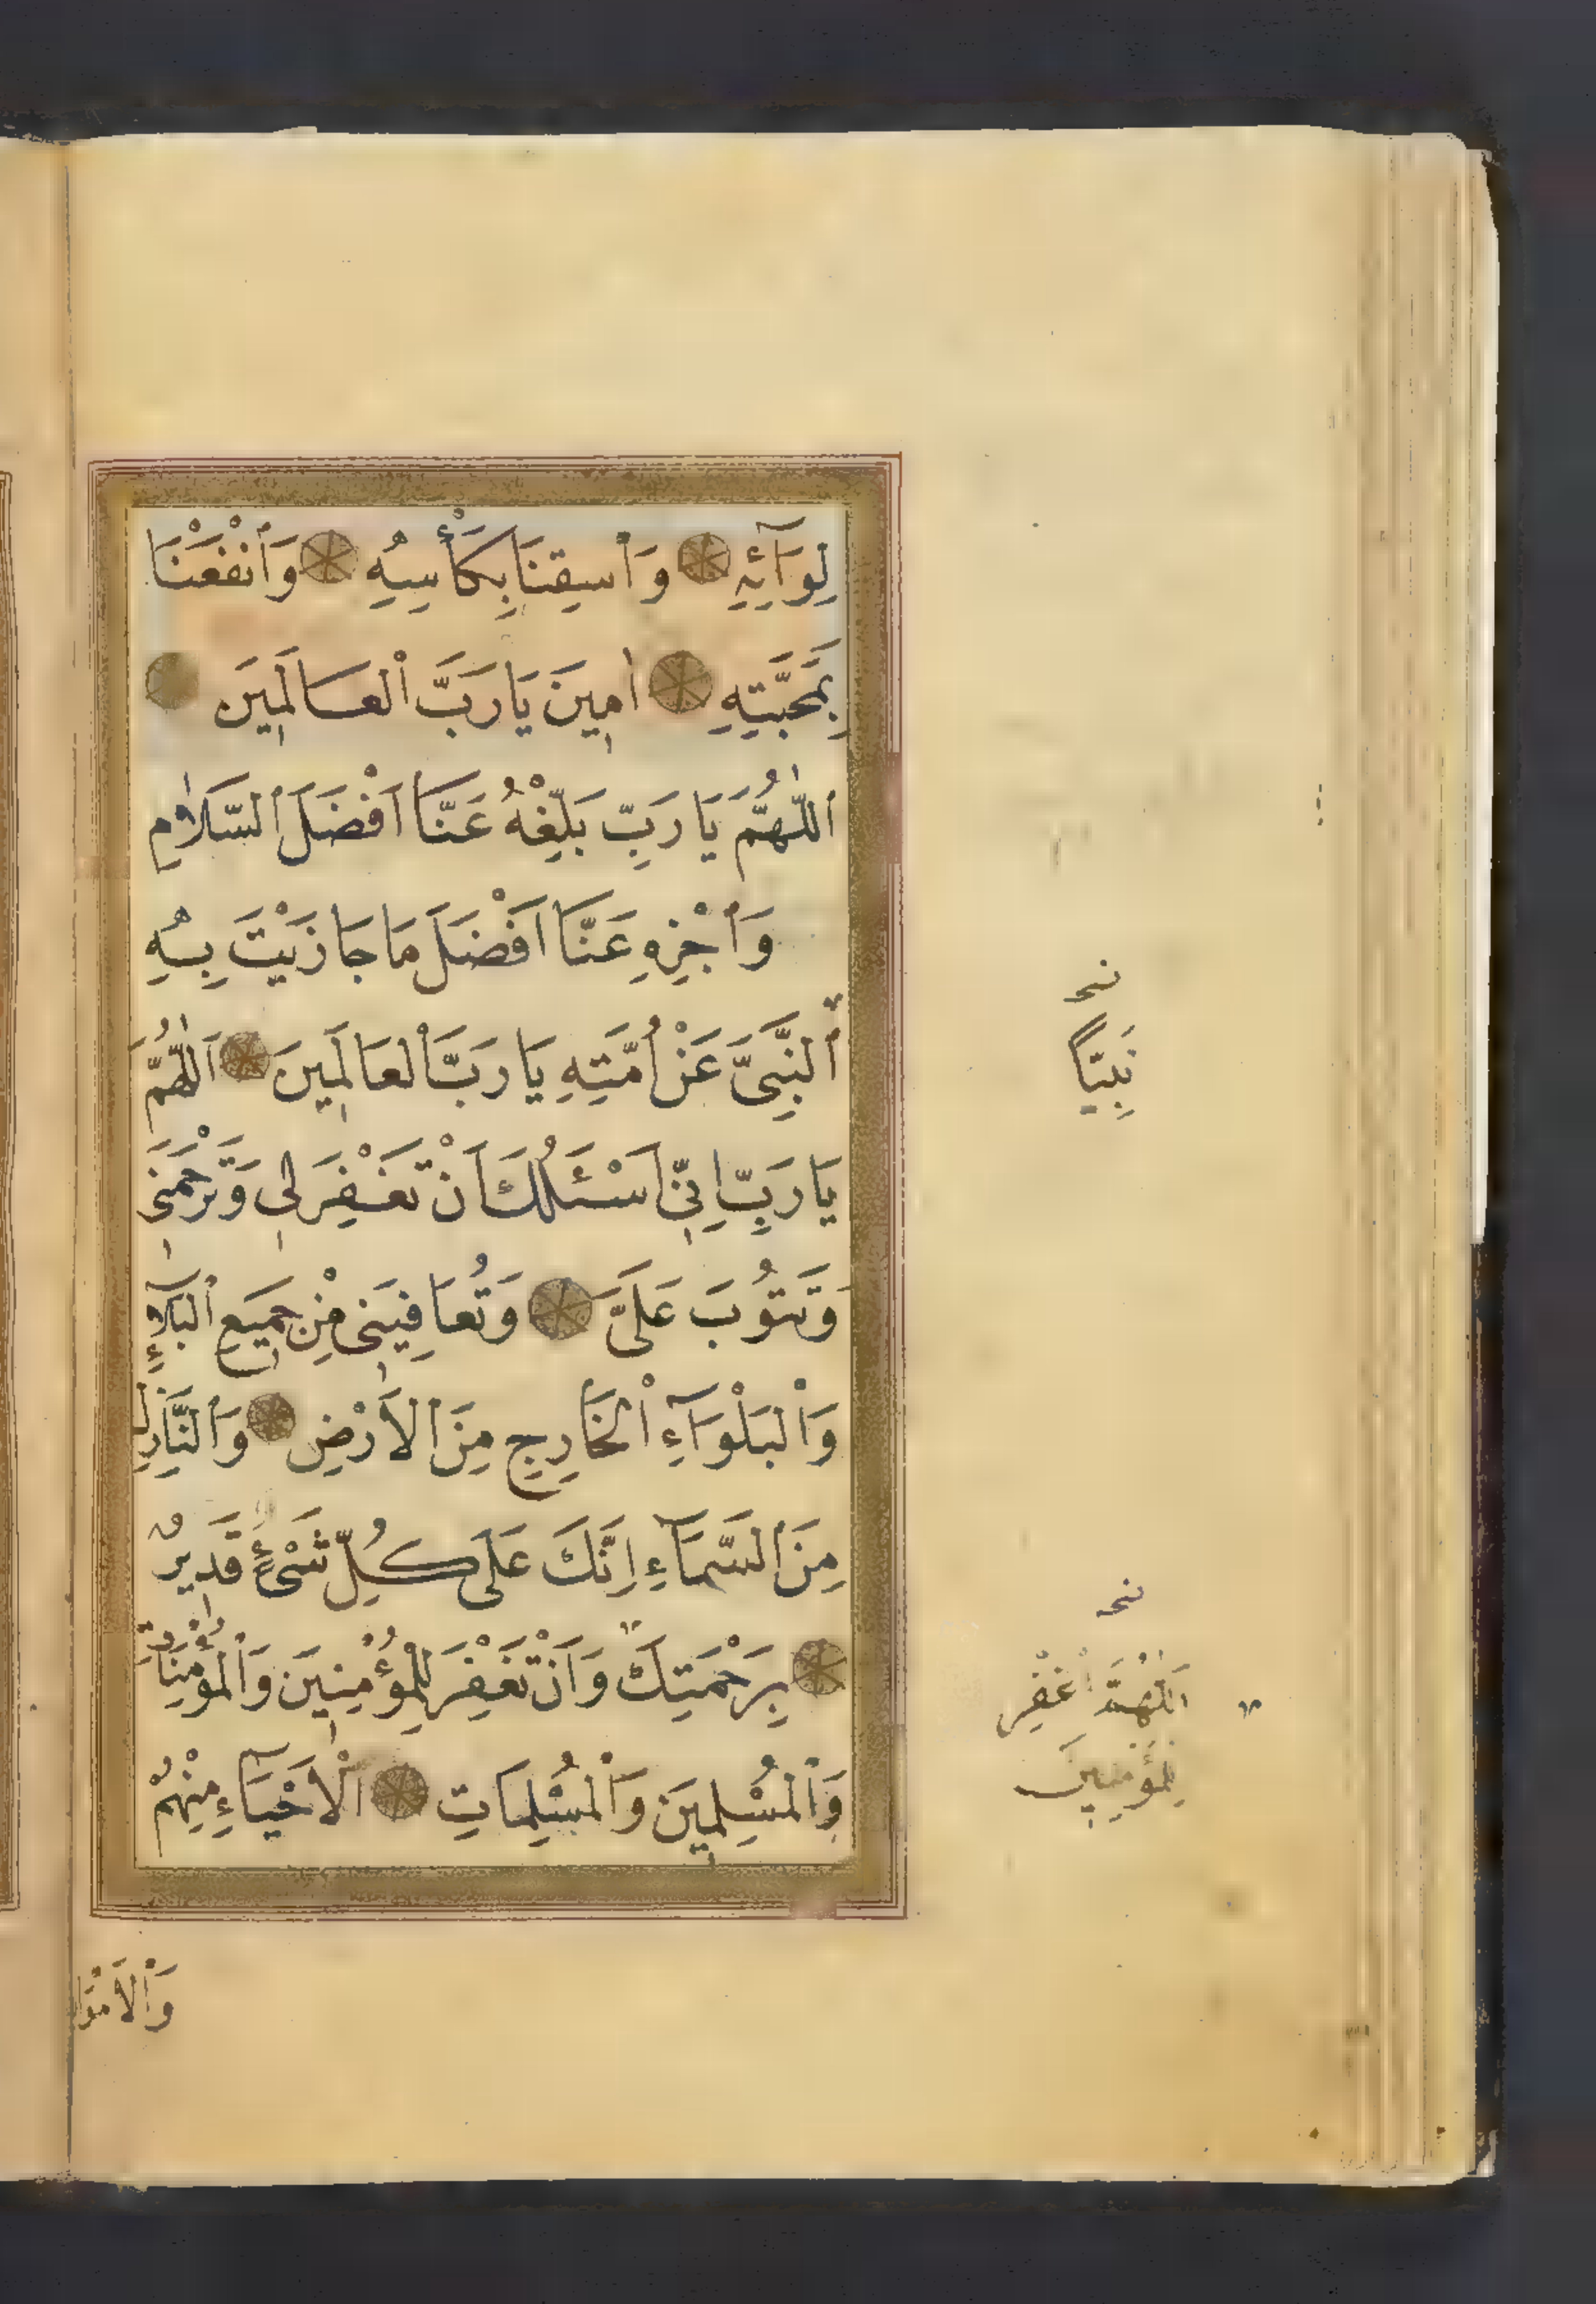 لِوَآئِهِ وَاسْقِنَا بِكَأْسِهِ وَانْفَعْنَا
بِمَحَبَّتِهِ اٰمِينَ يَا رَبَّ الْعَالَمِينَ
اَللّٰهُمَّ يَا رَبِّ بَلِّغْهُ عَنَّا اَفْضَلَ السَّلَامِ
وَاَجْزِهِ عَنَّا اَفْضَلَ مَا جَازَيْتَ بِهِ
النَّبِيَّ عَنْ اُمَّتِهِ يَا رَبَّ الْعَالَمِينَ اَللّٰهُمَّ
يَا رَبِّ اِنِّي اَسْئَلُكَ اَنْ تَغْفِرَ لِي وَتَرْحَمَنِي
وَتَتُوبَ عَلَيَّ وَتُعَافِيَنِي مِنْ جَمِيعِ الْبَلَآءِ
وَالْبَلْوَآءِ الْخَارِجِ مِنَ الْاَرْضِ وَالنَّازِلِ
مِنَ السَّمَآءِ اِنَّكَ عَلَى كُلِّ شَيْءٍ قَدِيرٌ
بِرَحْمَتِكَ وَاَنْ تَغْفِرَ لِلْمُؤْمِنِينَ وَالْمُؤْمِنَاتِ
وَالْمُسْلِمِينَ وَالْمُسْلِمَاتِ الْاَحْيَآءِ مِنْهُمْ
وَالْاَمْوَا
نَبِيًّا
اَللّٰهُمَّ اغْفِرْ
لِلْمُؤْمِنِينَ